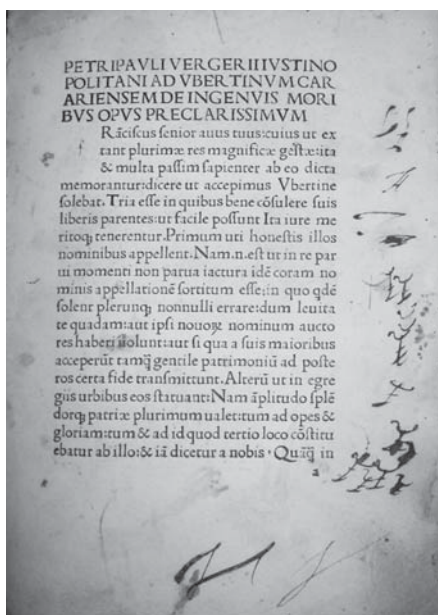 PETRIPAVLI VERGERII IVSTINO
POLITANI AD VBERTINVM CAR
ARIENSEM DE INGENVIS MORI
BVS OPVS PRECLARISSIMVM
Rãciscus senior auus tuus:cuius ut ex
f tant plurimæ res magnificæ gestæ:ita
& multa passim sapienter ab eo dicta
memorantur:dicere ut accepimus Vbertine
solebat. Tria esse in quibus bene cõsulere suis
liberis parentes:ut facile possunt Ita iure me
ritoq; tenerentur. Primum uti honestis illos
nominibus appellent. Nam.n.est ut in re par
ui momenti non parua iactura idẽ coram no
minis appellationẽ sortitum esse:in quo qdẽ
solent plerunq; nonnulli errare:dum leuita
te quadam:aut ipsi nouoꝝ nominum aucto
res haberi uolunt:aut si qua a suis maioribus
acceperũt tamq̃ gentile patrimoniũ ad poste
ros certa fide transmittunt. Alterũ ut in egre
giis urbibus eos statuant:Nam ãplitudo splẽ
dorq; patriæ plurimum ualet:tum ad opes &
gloriam:tum & ad id quod tertio loco cõstitu
ebatur ab illo:& iã dicetur a nobis · Quãq̃ in
a